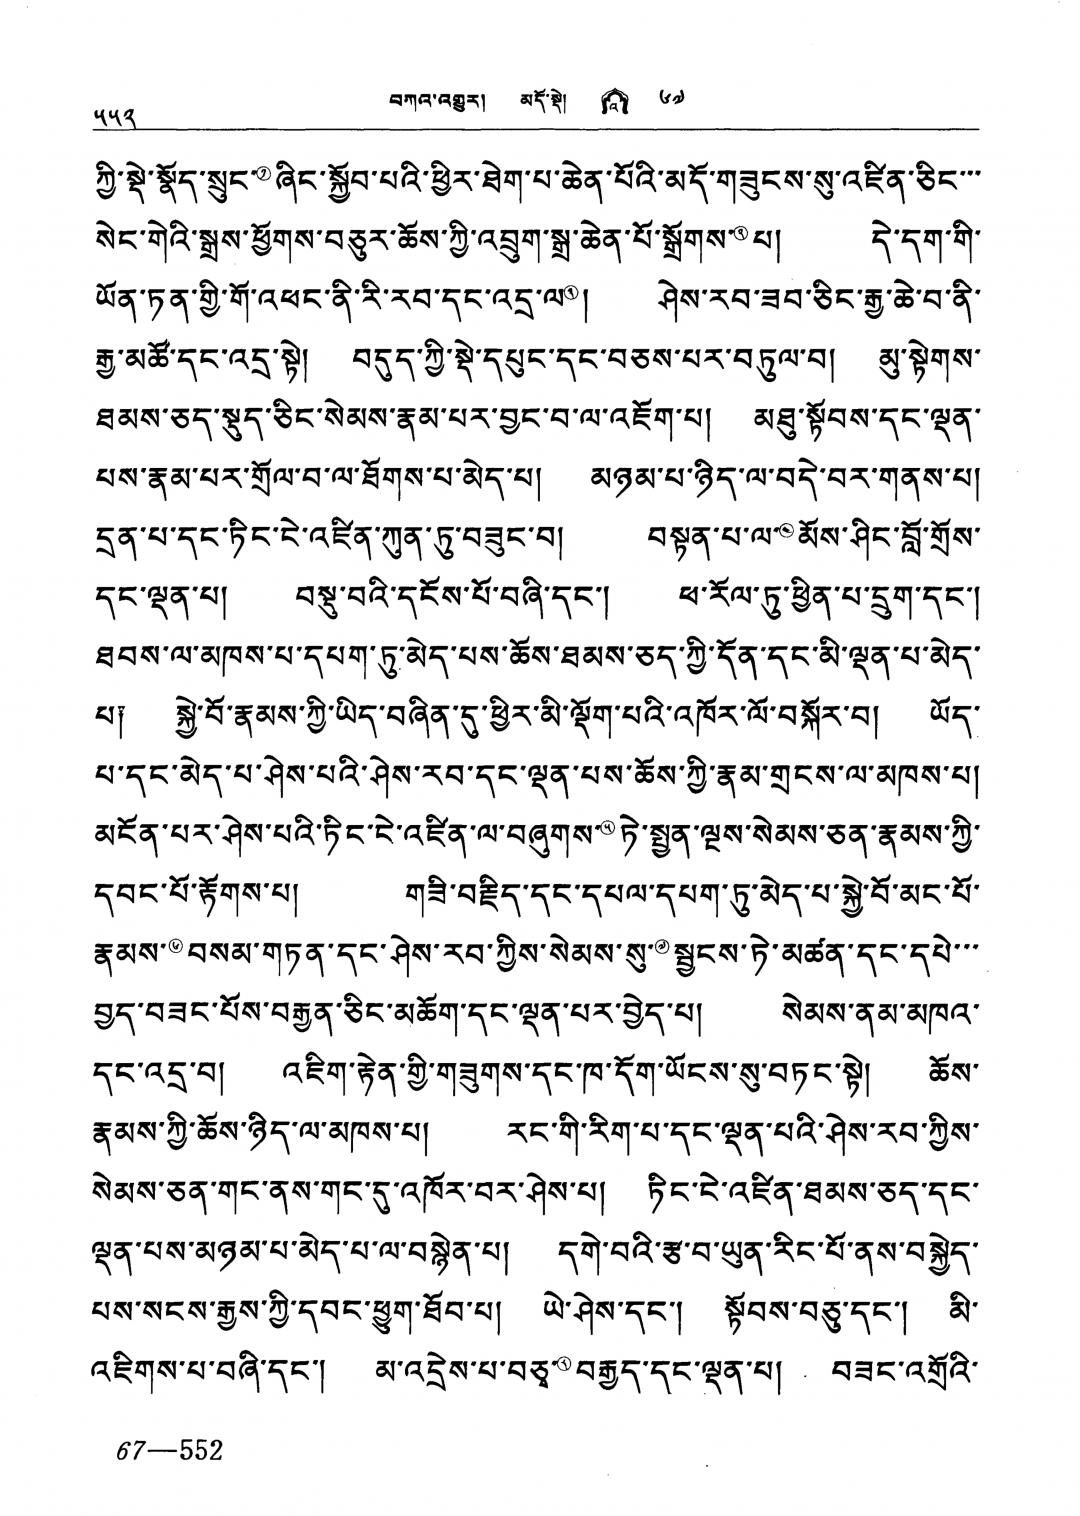 ༥༥༢ བཀའ་འགྱུར། མདོ་སྡེ། ༦༧
ཀྱི་སྡེ་སྣོད་སྲུང་⑦ཞིང་སྐྱོབ་པའི་ཕྱིར་ཐེག་པ་ཆེན་པོའི་མདོ་གཟུངས་སུ་འཛིན་ཅིང་…
སེང་གེའི་སྒྲས་ཕྱོགས་བཅུར་ཆོས་ཀྱི་འབྲུག་སྒྲ་ཆེན་པོ་སྒྲོགས་②པ། དེ་དག་གི་
ཡོན་ཏན་གྱི་གོ་འཕང་ནི་རི་རབ་དང་འདྲ་ལ③། ཤེས་རབ་ཟབ་ཅིང་རྒྱ་ཆེ་བ་ནི་
རྒྱ་མཚོ་དང་འདྲ་སྟེ། བདུད་ཀྱི་སྡེ་དཔུང་དང་བཅས་པར་བཏུལ་བ། མུ་སྟེགས་
ཐམས་ཅད་སྡུད་ཅིང་སེམས་རྣམ་པར་བྱང་བ་ལ་འཇོག་པ། མཐུ་སྟོབས་དང་ལྡན་
པས་རྣམ་པར་གྲོལ་བ་ལ་ཐོགས་པ་མེད་པ། མཉམ་པ་ཉིད་ལ་བདེ་བར་གནས་པ།
དྲན་པ་དང་ཏིང་ངེ་འཛིན་ཀུན་ཏུ་བཟུང་བ། བསྟན་པ་ལ་④མོས་ཤིང་བློ་གྲོས་
དང་ལྡན་པ། བསྡུ་བའི་དངོས་པོ་བཞི་དང་། ཕ་རོལ་ཏུ་ཕྱིན་པ་དྲུག་དང་།
ཐབས་ལ་མཁས་པ་དཔག་ཏུ་མེད་པས་ཆོས་ཐམས་ཅད་ཀྱི་དོན་དང་མི་ལྡན་པ་མེད་
པ༑ སྐྱེ་བོ་རྣམས་ཀྱི་ཡིད་བཞིན་དུ་ཕྱིར་མི་ལྡོག་པའི་འཁོར་ལོ་བསྐོར་བ། ཡོད་
པ་དང་མེད་པ་ཤེས་པའི་ཤེས་རབ་དང་ལྡན་པས་ཆོས་ཀྱི་རྣམ་གྲངས་ལ་མཁས་པ།
མངོན་པར་ཤེས་པའི་ཏིང་ངེ་འཛིན་ལ་བཞུགས་⑤ཏེ་སྤྱན་ལྔས་སེམས་ཅན་རྣམས་ཀྱི་
དབང་པོ་རྟོགས་པ། གཟི་བརྗིད་དང་དཔལ་དཔག་ཏུ་མེད་པ་སྐྱེ་བོ་མང་པོ་
རྣམས་⑥བསམ་གཏན་དང་ཤེས་རབ་ཀྱིས་སེམས་སུ་⑦སྦྱངས་ཏེ་མཚན་དང་དཔེ་…
བྱད་བཟང་པོས་བརྒྱན་ཅིང་མཆོག་དང་ལྡན་པར་བྱེད་པ། སེམས་ནམ་མཁའ་
དང་འདྲ་བ། འཇིག་རྟེན་གྱི་གཟུགས་དང་ཁ་དོག་ཡོངས་སུ་བཏང་སྟེ། ཆོས་
རྣམས་ཀྱི་ཆོས་ཉིད་ལ་མཁས་པ། རང་གི་རིག་པ་དང་ལྡན་པའི་ཤེས་རབ་ཀྱིས་
སེམས་ཅན་གང་ནས་གང་དུ་འཁོར་བར་ཤེས་པ། ཏིང་ངེ་འཛིན་ཐམས་ཅད་དང་
ལྡན་པས་མཉམ་པ་མེད་པ་ལ་བསྙེན་པ། དགེ་བའི་རྩ་བ་ཡུན་རིང་པོ་ནས་བསྐྱེད་
པས་སངས་རྒྱས་ཀྱི་དབང་ཕྱུག་ཐོབ་པ། ཡེ་ཤེས་དང་། སྟོབས་བཅུ་དང་། མི་
འཇིགས་པ་བཞི་དང་། མ་འདྲེས་པ་བཅྭ་①བརྒྱད་དང་ལྡན་པ། བཟང་འགྲོའི་
67—552